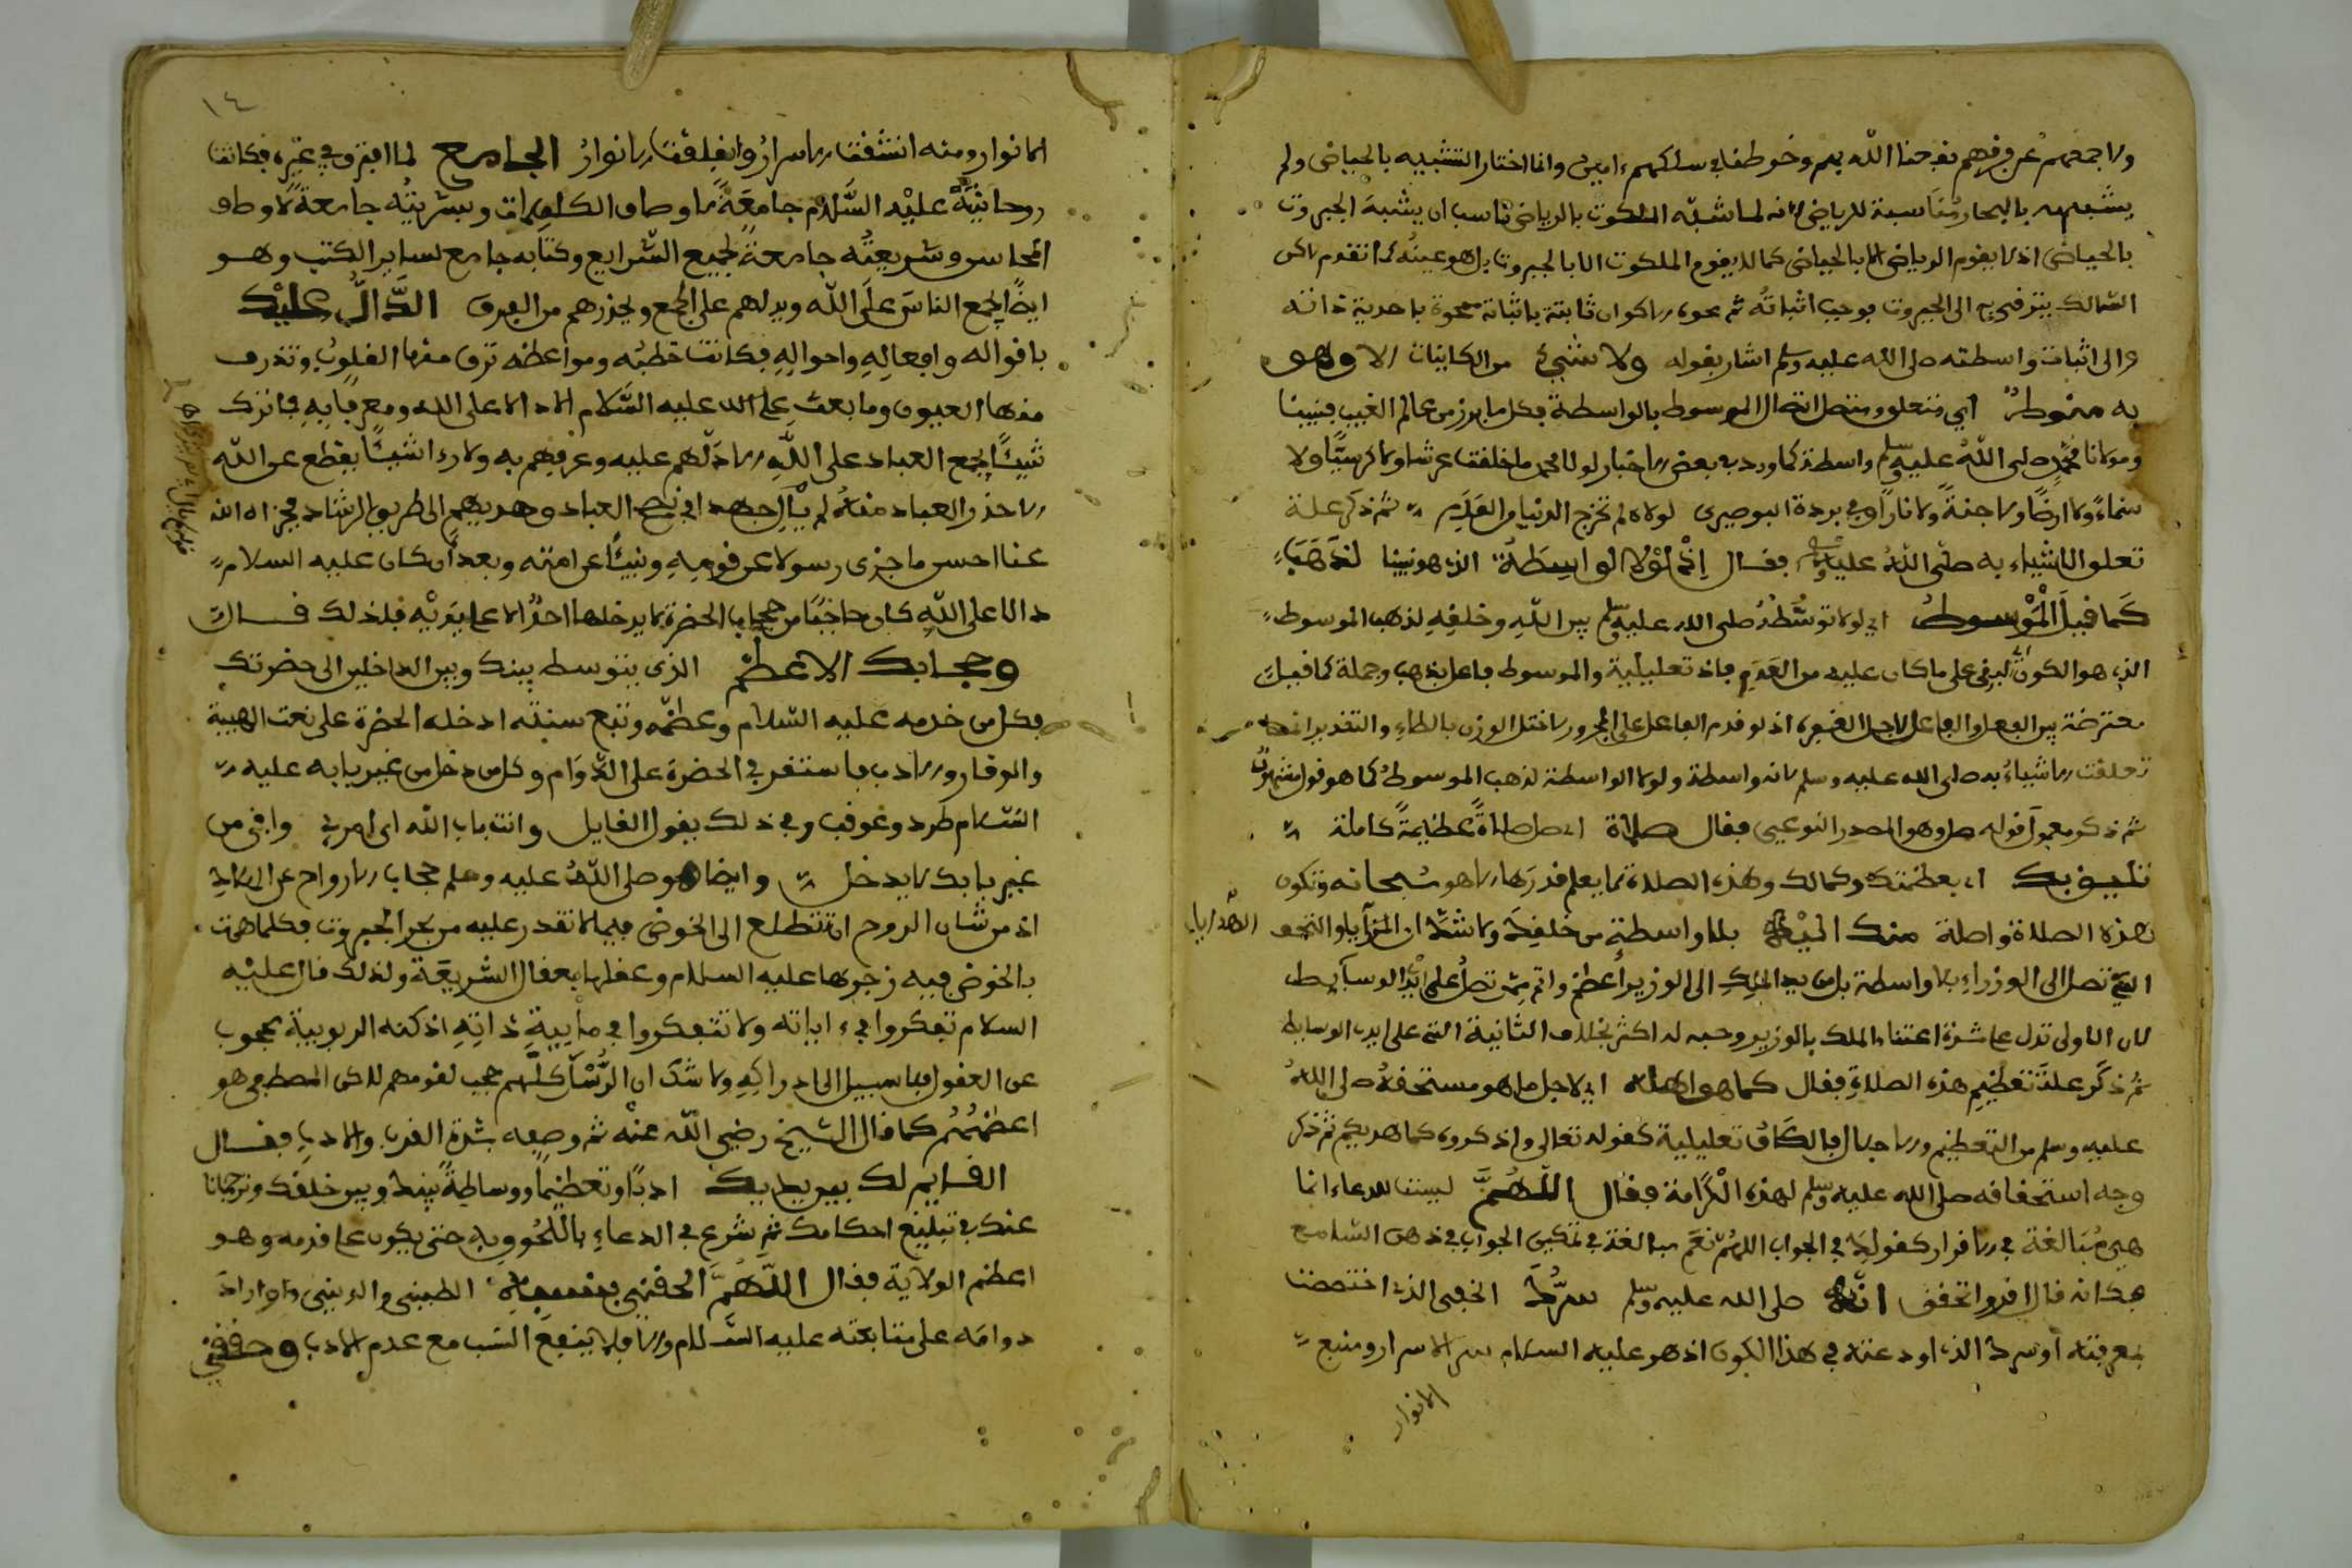 ولاجمعهم عن فرقهم نفعنا الله بهم وخرطنا في سلكهم ءامين وانما اختار التشبيه بالحياض ولم
يشبهه بالبحار مناسبة للرياض لانه لما شبه الملكوت بالرياض ناسب ان يشبه الجبروت
بالحياض اذ لا يقوم الرياض الا بالحياض كما لا يقوم الملكوت الا بالجبروت بل هو عينه كما تقدم لاكن
السالك يترقى به الى الجبروت بوجب اثباته ثم محوه الاكوان ثابتة باثباته ممحوة باحدية ذاته
والى اثبات واسطته صلى الله عليه وسلم اشار بقوله ولا شيء من الكاينات الا وهو
به منوط اي متعلق ومتصل اتصال الموسوط بالواسطة فكل ما برز من عالم الغيب فنبينا
ومولانا محمد صلى الله عليه وسلم واسطة كما ورد في بعض الاخبار لولا محمد ما خلقت عرشا ولا كرسيا ولا
سماء ولا ارضا ولا جنة ولا نارا وفي بردة البوصيري لولاه لم تخرج الدنيا من العدم ثم ذكر علة
تعلق الاشياء به صلى الله عليه وسلم فقال اذ لولا الواسطة الذي هو نبينا لذهب
كما قيل الموسوط اي لولا توسطه صلى الله عليه وسلم بين الله وخلقه لذهب الموسوط
الذي هو الكون لبقى على ما كان عليه من العدم فاذ تعليلية والموسوط فاعل بذهب وجملة كما قيل
معترضة بين الفعل والفاعل لاجل الفقرة اذ لو قدم الفاعل على المجرور لاختل الوزن بالطاء والتقدير انما
تعلقت الاشياء به صلى الله عليه وسلم لانه واسطة ولولا الواسطة لذهب الموسوط كما هو قول مشهور
ثم ذكر معمول قوله صل وهو المصدر النوعي فقال صلاة اي صل صلاة عظيمة كاملة
تليق بك اي بعظمتك وكمالك وهذه الصلاة لا يعلم قدرها الا هو سبحانه وتكون
هذه الصلاة واصلة منك اليه بلا واسطة من خلقك ولا شك ان المزايا والتحف الهدايا
التي تصل الى الوزراء بلا واسطة بل من يد الملك الى الوزير اعظم واتم مما تصل على ايد الوسايط
لان الاولى تدل على شدة اعتناء الملك بالوزير وحبه له اكثر بخلاف الثانية التي على ايدي الوسايط
ثم ذكر علة تعظيم هذه الصلاة فقال كما هو اهله اي لاجل ما هو مستحقه صلى الله
عليه وسلم من التعظيم والاجلال فالكاف تعليلية كقوله تعالى واذكروه كما هديكم ثم ذكر
وجه استحقاقه صلى الله عليه وسلم لهذه الكرامة فقال اللهم ليست للدعاء انما
هي مبالغة في الاقرار كقولك في الجواب اللهم نعم مبالغة في تمكين الجواب في ذهن السامع
فكانه قال اقر واتحقق انه صلى الله عليه وسلم سرك الخفي الذي اختصصت
بمعرفته او سرك الذي اودعته في هذا الكون اذ هو عليه السلام سر الاسرار ومنبع
الانوار
١٤
الانوار ومنه انشقت الاسرار وانفلقت الانوار الجامع لما افترق في غيره فكانت
روحانيته عليه السلام جامعة لاوصاف الكمالات وبشريته جامعة لاوصاف
المحاسن وشريعته جامعة لجميع الشرايع وكتابه جامع لساير الكتب وهو
ايضا يجمع الناس على الله ويدلهم على الجمع ويحذرهم من الفرق الدال عليك
باقواله وافعاله واحواله فكانت خطبه ومواعظه ترق منها القلوب وتذرف
منها العيون وما بعث عليه السلام الا دالا على الله ومعرفا به فما ترك
شيئا يجمع العباد على الله الا دلهم عليه وعرفهم به ولا رءا شيئا يقطع عن الله
الا حذر العباد منه لم يال جهدا في نصح العباد وهديهم الى طريق الرشاد فجزاه الله
عنا احسن ما جزى رسولا عن قومه ونبيئا عن امته وبعد ان كان عليه السلام
دالا على الله كان حاجبا من حجاب الحضرة لا يدخلها احد الا على يديه فلذلك قال
وحجابك الاعظم الذي يتوسط بينك وبين الداخلين الى حضرتك
فكل من خدمه عليه السلام وعظمه وتبع سنته ادخله الحضرة على نعت الهيبة
والوقار والادب فاستقر في الحضرة على الدوام وكل من دخل من غير بابه عليه
السلام طرد وعوقب وفي ذلك يقول القايل وانت باب الله اي امرئ وافى من
غير بابك لا يدخل وايضا هو صلى الله عليه وسلم حجاب الارواح عن
اذ من شان الروح ان تتطلع الى الخوض فيما لا تقدر عليه من بحر الجبروت فكلما همت
بالخوض فيه زجرها عليه السلام وعقلها بعقال الشريعة ولذلك قال عليه
السلام تفكروا في ءاياته ولا تتفكروا في ماهية ذاته اذ كنه الربوبية محجوب
عن العقول فلا سبيل الى ادراكه ولا شك ان الرسل كلهم حجب لقومهم لاكن المصطفى هو
اعظمهم كما قال الشيخ رضي الله عنه ثم وصفه بشدة القرب والادب فقال
القايم لك بين يديك ادبا وتعظيما ووساطة بينك وبين خلقك وترجمانا
عنك في تبليغ احكامك ثم شرع في الدعاء باللحوق به حتى يكون على قدمه وهو
اعظم الولاية فقال اللهم الحقني بنسبه الطيني والديني واراد
دوامه على متابعته عليه السلام والا فلا ينفع النسب مع عدم الادب وحققني